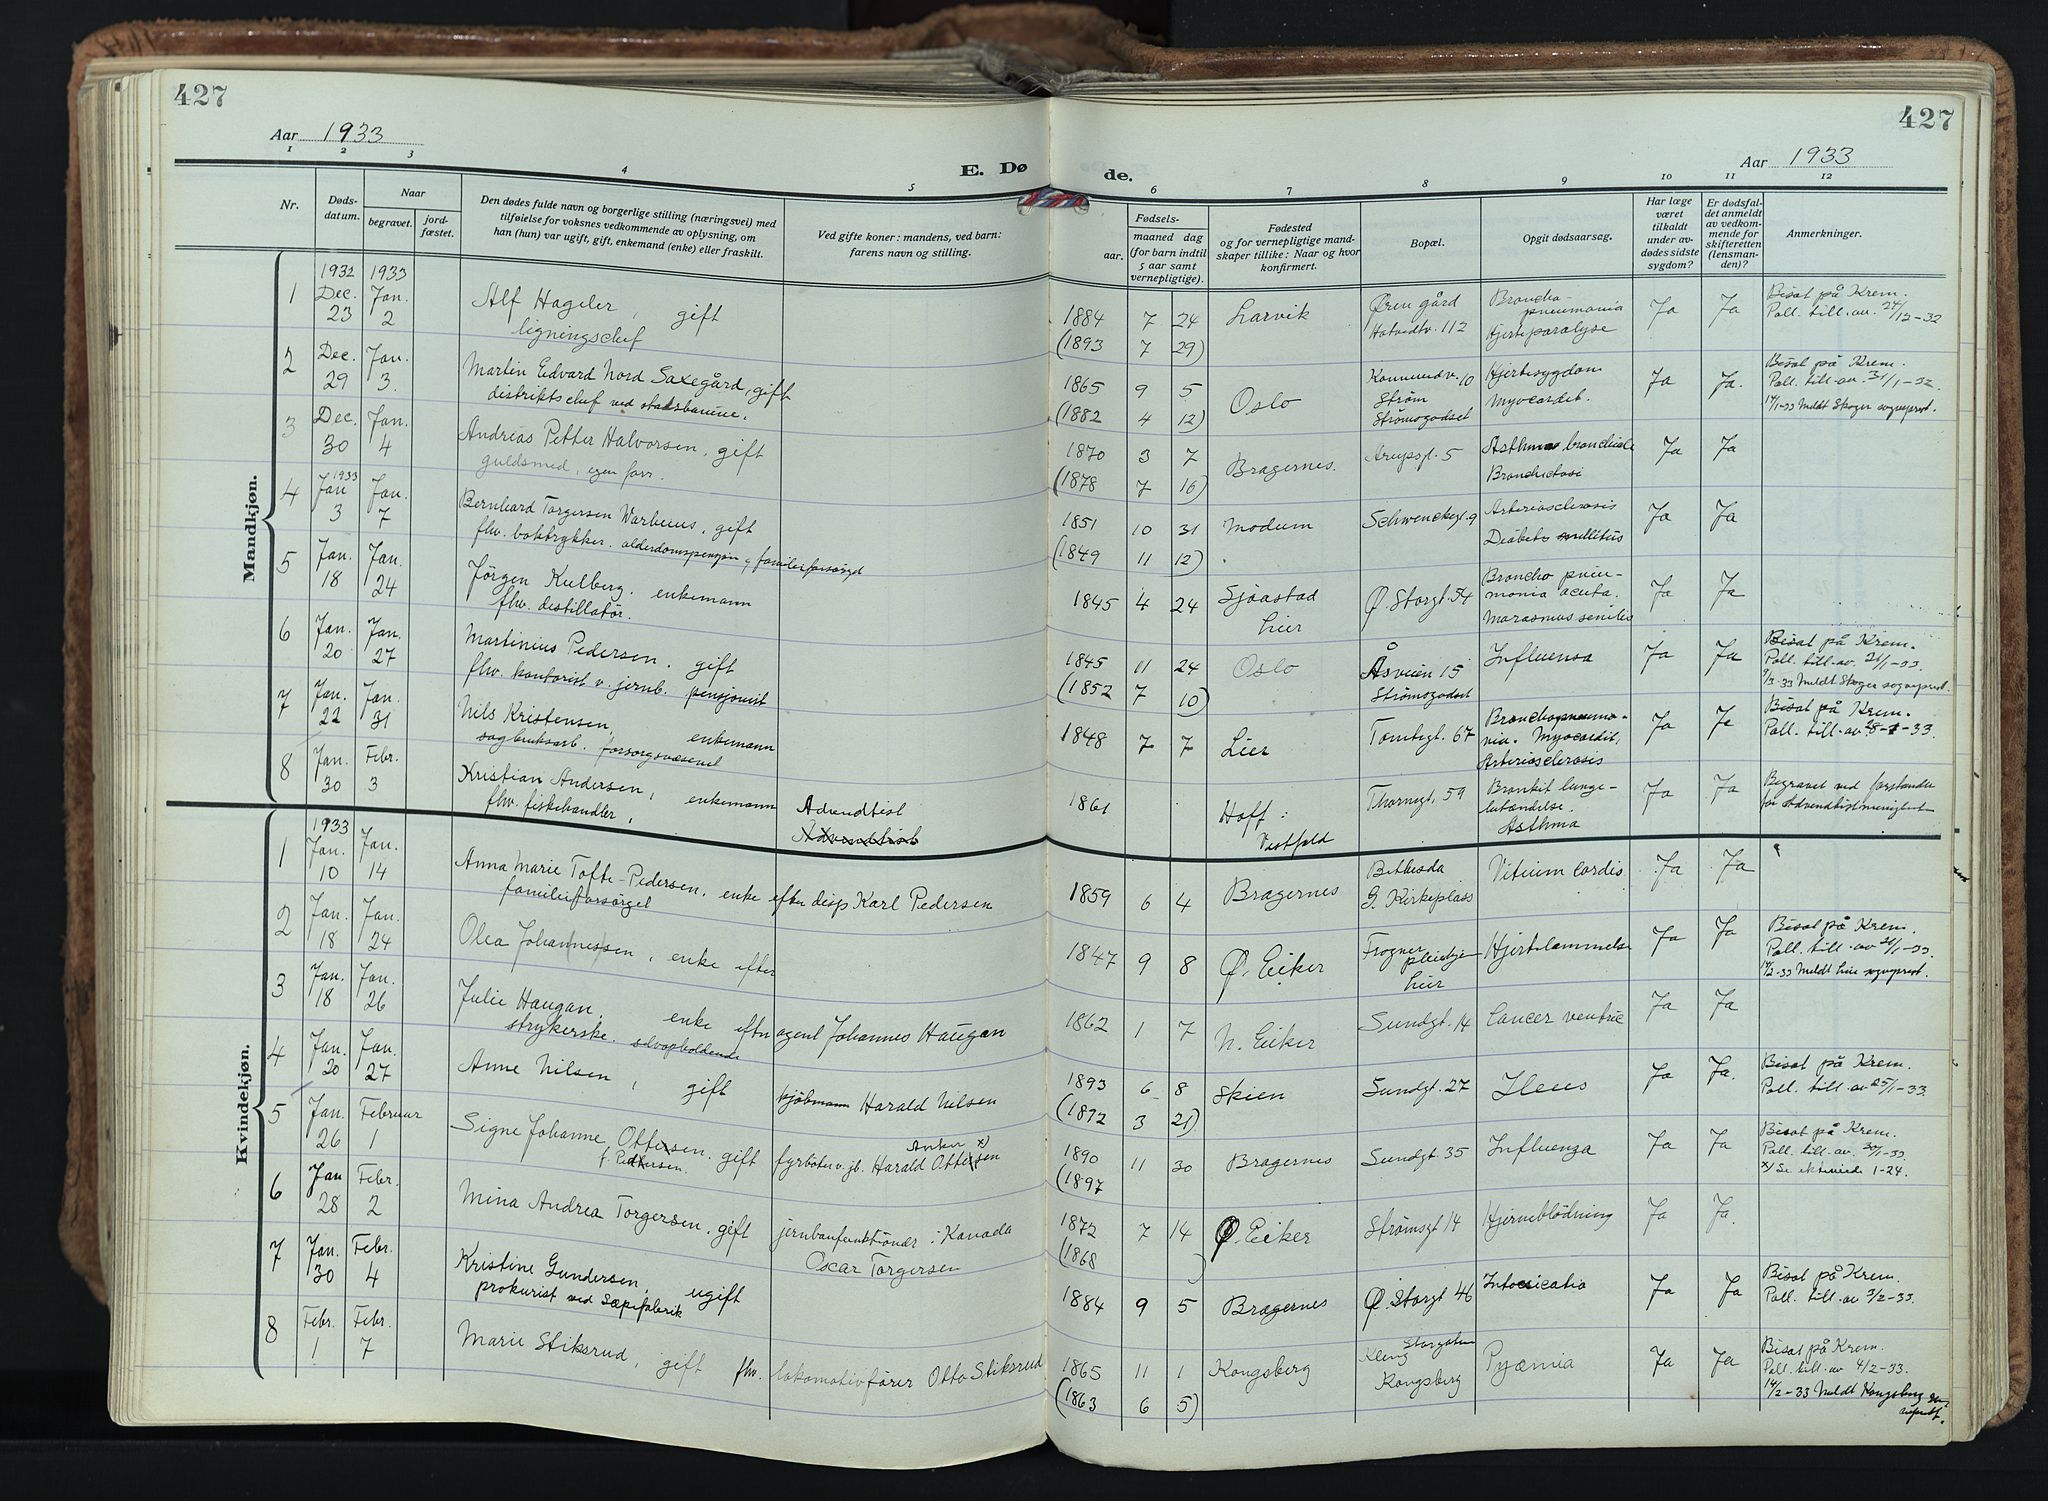 427
427
Aar 1933
Aar 1933
E. Dø
de.
1 2 3 4 5 6 7 8 9 10 11 12
Nr.
Døds-
datum.
Naar
begravet.
jord-
fæstet.
Den dødes fulde navn og borgerlige stilling (næringsvei) med
tilføielse for voksnes vedkommende av oplysning, om
han (hun) var ugift, gift, enkemand (enke) eller fraskilt.
Ved gifte koner: mandens, ved barn:
farens navn og stilling.
Fødsels-
aar.
maaned dag
(for barn indtil
5 aar samt
vernepligtige).
Fødested
og for vernepligtige mand-
skaper tillike: Naar og hvor
konfirmert.
Bopæl.
Opgit dødsaarsag.
Har læge
været
tilkaldt
under av-
dødes sidste
sygdom?
Er dødsfal-
det anmeldt
av vedkom-
mende for
skifteretten
(lensman-
den)?
Anmerkninger.
Mandkjøn.
1932 1933
1 Dec. 23 Jan. 2 Alf Hageler, gift 1884 7 24 Larvik Øren gård Broncho- Ja Ja Bisat på Krem.
ligningschef (1893 7 29) Hotvedtv. 112 pneumonia Poll. till. av. 24/12-32
Hjerteparalyse
2 Dec. 29 Jan. 3. Martin Edvard Nord Saxegård, gift 1865 9 5 Oslo Konnerudv. 10 Hjertesygdom Ja Ja. Bisat på Krem.
distriktschef ved statsbanene. (1882 4 12) Strøm Myocardit. Poll. till. av. 31/1-32.
Strømsgodset 17/1-33 Meldt Skoger sogneprest.
3 Dec. 30 Jan. 4 Andreas Petter Halvorsen, gift 1870 3 7 Bragernes. Arupsgt. 5 Asthma bronchiale Ja Ja
guldsmed, egen forr. (1878 7 16) Bronchictasi
1933
4 Jan 3 Jan. 7 Bernhard Torgersen Varhuus, gift 1851 10 31 Modum Schwenckegt. 9 Arteriosclerosis Ja Ja
fhv. boktrykker. alderdomspensjon og familieforsørgd (1849 11 12) Diabetes mellitus
5 Jan. 18 Jan. 24 Jörgen Kulberg. enkemann 1845 4 24 Sjåstad Ø. Storgt. 54 Broncho pneu- Ja Ja
fhv. destillatör. Lier monia acuta.
Marasmus senilis
6 Jan. 20 Jan. 27 Martinius Pedersen. gift 1845 11 24 Oslo Åsveien 15 Influensa Ja Ja Bisat på Krem.
fhv. kontorist v. jernb. pensjonist (1852 7 10) Strømsgodset Poll. till. av. 21/1-33.
9/3-33 Meldt Skoger sogneprest.
7 Jan. 22 Jan. 31 Nils Kristensen, enkemann 1848 7 7 Lier Tomtegt. 67 Bronchopneumo- Ja Ja Bisat på Krem.
sagbruksarb. forsorgsvæsenet nia. Myocardit, Poll. till. av. 28-1-33.
Arteriosclerosis
8 Jan. 30 Febr. 3 Kristian Andersen, enkemann Advendtist 1861 Hoff i Thornegt. 59 Bronkit lunge- Ja Ja Begravet ved forstander
fhv. fiskehandler, Advendtist Vestfold betændelse. for Advendtistmenighet
Asthma
Kvindekjøn.
1933
1 Jan. 10 Jan. 14 Anna Marie Tofte-Pedersen. enke efter disp Karl Pedersen 1859 6 4 Bragernes Bethesda Vitium cordis Ja Ja
familieforsørget G. Kirkeplass
2 Jan. 18 Jan. 24 Olea Johan(nes)sen, enke efter 1847 9 8 Ø. Eiker Frogner Hjertelammelse Ja Ja Bisat på Krem.
pleiehje Poll. till. av 21/1-33.
Lier 14/2-33 Meldt Lier sogneprest.
3 Jan. 18 Jan. 26 Julie Haugan. enke efter agent Johannes Haugan 1862 1 7 N. Eiker Sundgt. 14 Cancer ventric Ja Ja
strykerske. selvopholdende
4 Jan. 20 Jan. 27 Anne Nilsen, gift kjøbmann Harald Nilsen 1893 6 8 Skien Sundgt. 27 Ileus Ja Ja. Bisat på Krem.
(1872 3 21) Poll. till. av 25/1-33.
5 Jan. 26 Februar 1 Signe Johanne Ottersen. gift fyrböter v. jb. Harald Ottersen Anker x) 1890 11 30 Bragernes Sundgt. 35 Influenza Ja Ja Bisat på Krem.
f. Pettersen. (1897 Poll. till. av. 30/1-33.
x) Se 1-24.
6 Jan 28 Febr. 2 Mina Andrea Torgersen. gift jernbanfunktionær i Kanada 1872 7 14 Ø. Eiker Strømsgt 14 Hjerneblödning Ja Ja.
Oscar Torgersen (1868 )
7 Jan. 30 Febr. 4 Kristine Gundersen, ugift 1884 9 5 Bragernes Ø. Storgt 46 Intoxicatio Ja Ja Bisat på Krem.
prokurist ved Sæpefabrik Poll. till. av 3/2-33.
8 Febr. 1 Febr. 7 Marie Stiksrud, gift fhv. lokomotivfører Otto Stiksrud 1865 11 1 Kongsberg Storgaten Pyæmia Ja Ja Bisat på Krem.
(1863 6 5) Kongsberg Poll. till. av 4/2-33.
14/2-33 Meldt Kongsberg